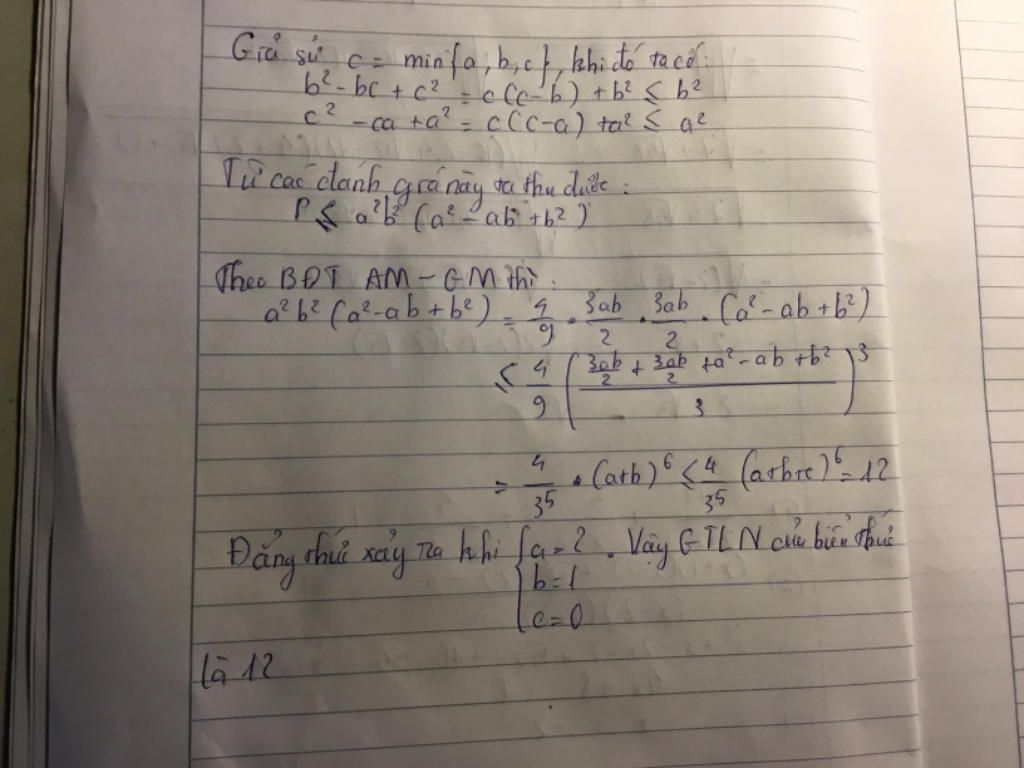 Giả sử c = min{a, b, c}, khi đó ta có:
b² - bc + c² = c(c-b) + b² ≤ b²
c² - ca + a² = c(c-a) + a² ≤ a²
Từ các đánh giá này ta thu được:
P ≤ a²b²(a² - ab + b²)
Theo BĐT AM - GM thì:
a²b²(a² - ab + b²) = 4/9 . 3ab/2 . 3ab/2 . (a² - ab + b²)
≤ 4/9 ((3ab/2 + 3ab/2 + a² - ab + b²)/3)³
= 4/3⁵ . (a+b)⁶ ≤ 4/3⁵ (a+b+c)⁶ = 12
Đẳng thức xảy ra khi { a = 2 . Vậy GTLN của biểu thức
b = 1
c = 0
là 12